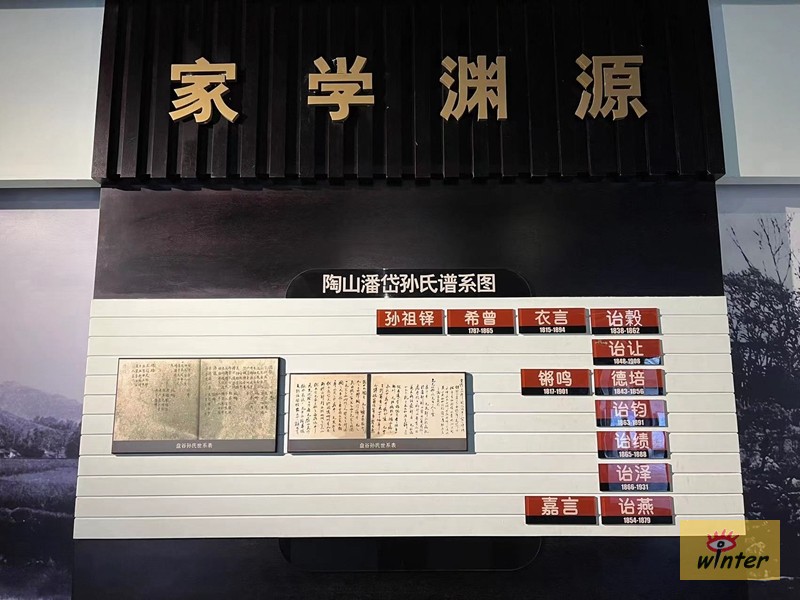 家学渊源
陶山潘岱孙氏谱系图
孙祖铎 希曾 衣言 诒穀
1787-1865 1815-1894 1838-1862
诒让
1848-1908
锵鸣 德培
1817-1901 1843-1856
诒钧
1863-1891
诒绩
1865-1888
诒泽
1866-1931
嘉言 诒燕
1854-1879
盘谷孙氏世系表 盘谷孙氏世系表
winter